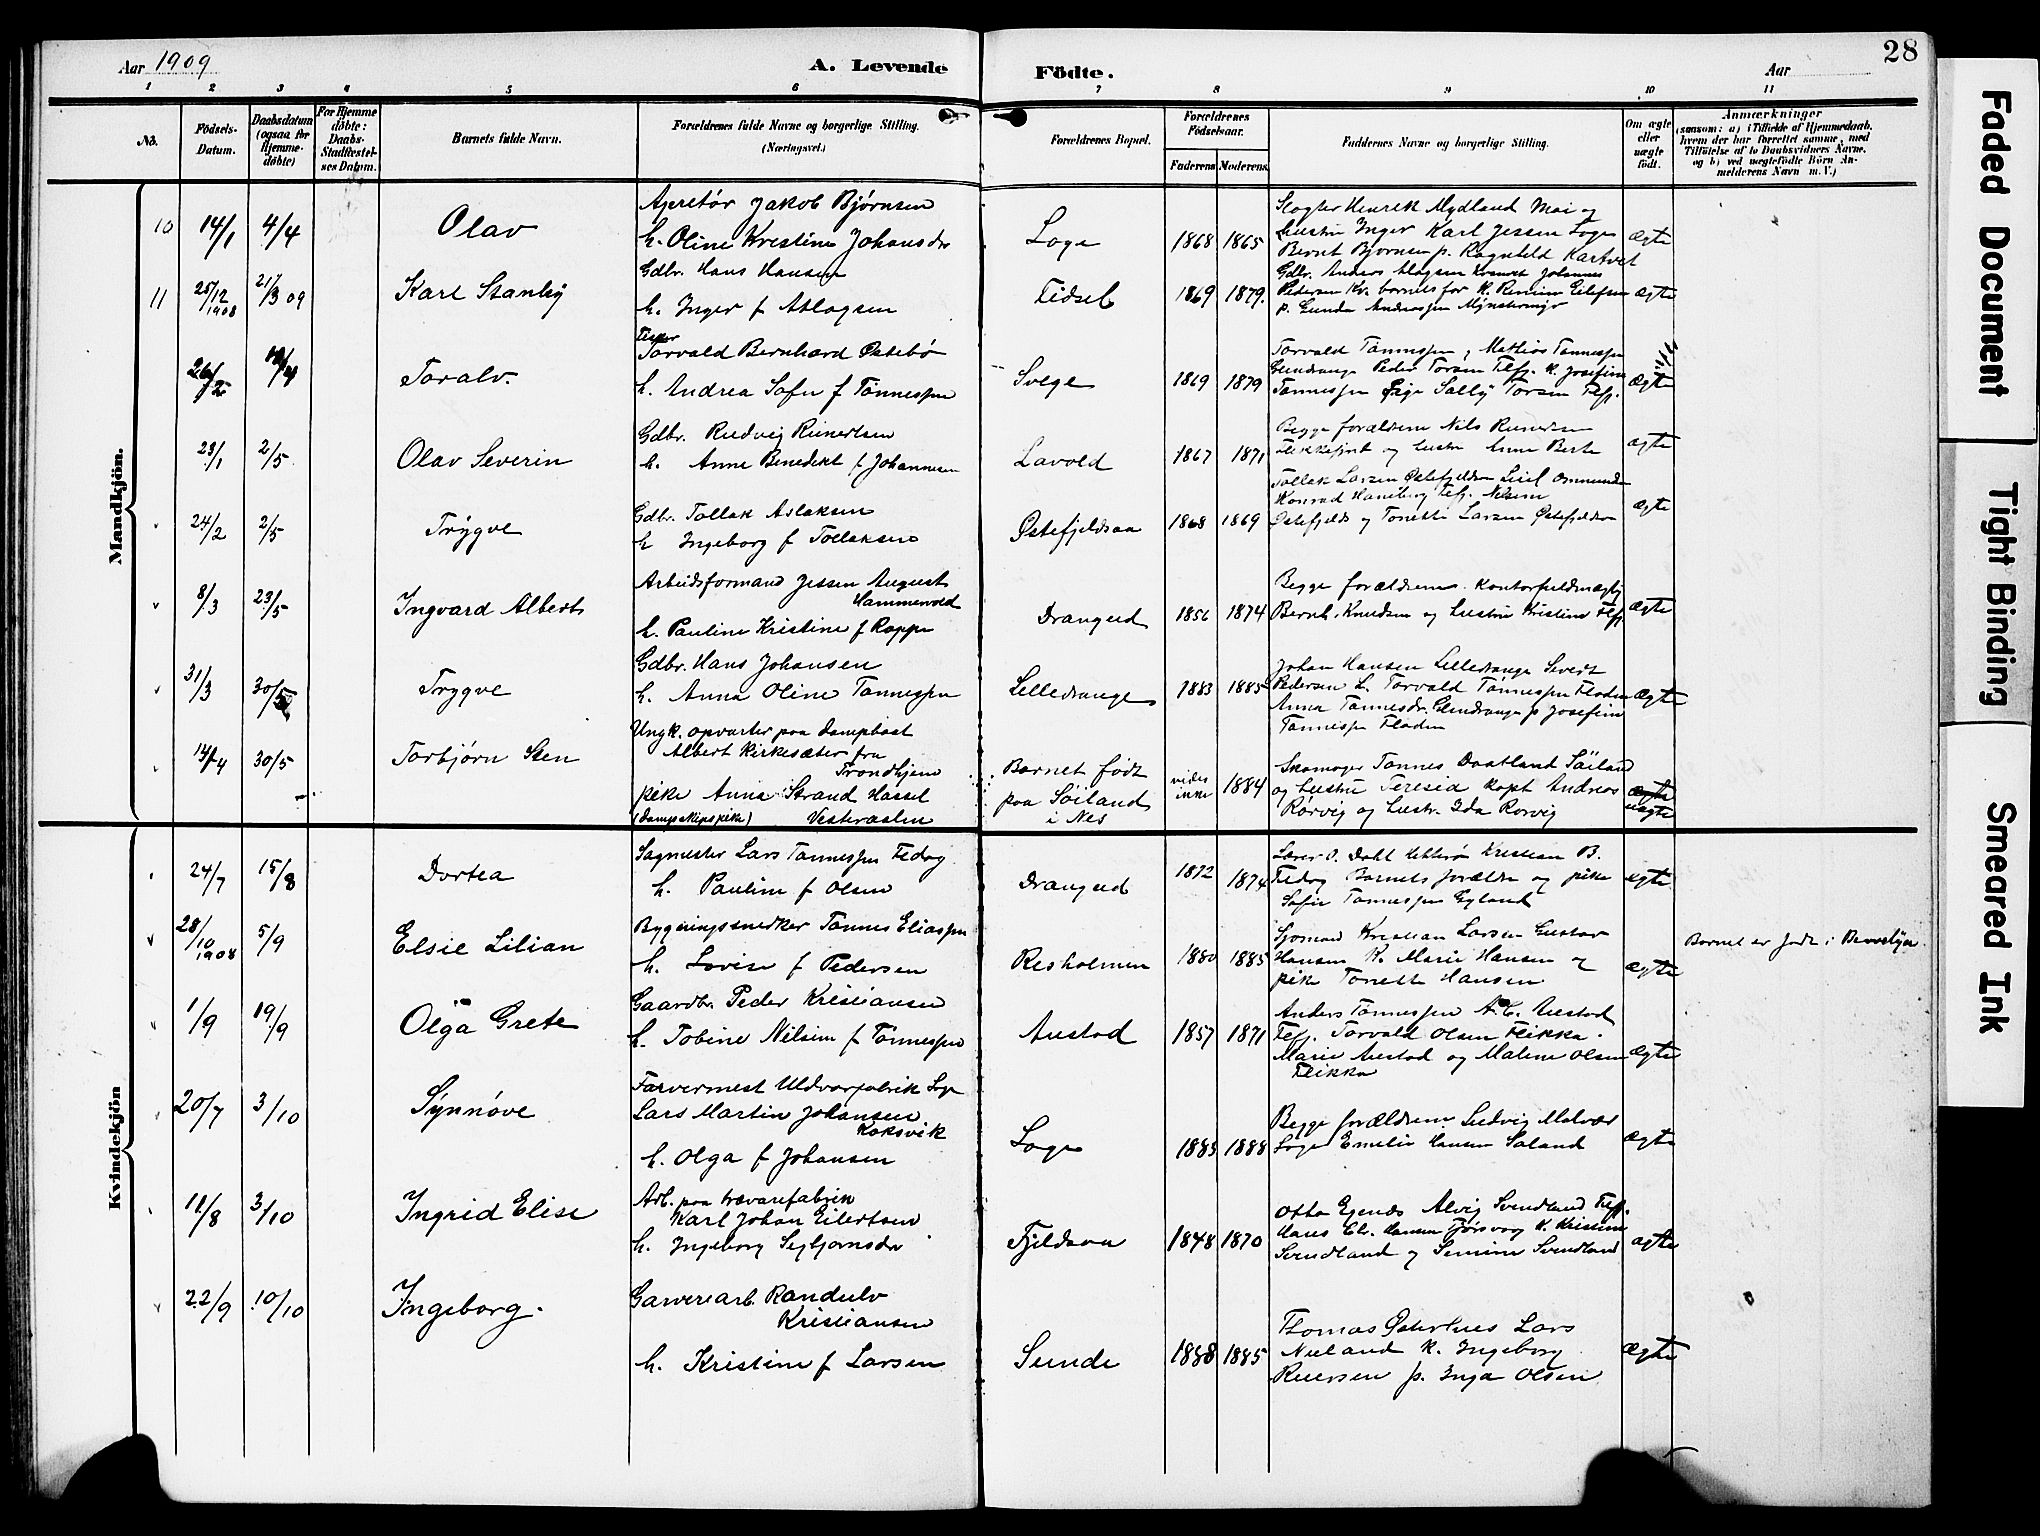 Aar 1909
A. Levende
Födte.
Aar
28
1 2 3 4 5 6 7 8 9 10 11
No.
Födsels-Datum.
Daabsdatum (ogsaa for Hjemme-döbte)
For Hjemme döbte: Daabs-Stadfæstel-ses Datum.
Barnets fulde Navn.
Forældrenes fulde Navne og borgerlige Stilling.
(Næringsvei.)
Forældrenes Bopæl.
Forældrenes Födselsaar.
Faderens Moderens
Faddernes Navne og borgerlige Stilling.
Om ægte eller uægte födt.
Anmærkninger
(saasom: a) i Tilfælde af Hjemmedaab, hvem der har forrettet samme, med Tilföielse af to Daabsvidners Navne, og b) ved uægtefödte Börn An-melderens Navn m. V.)
Mandkjön.
10 14/1 4/4 Olav
Jakob Bjørnsen
h. Oline Kristine Johansdr
Loge 1868 1865
Slagter Henrik Mydland Moi og
Hustru Inger Karl Jessen Loge
Bernt Bjornsen p. Ragnhild
ægte
11 25/12 1908 21/3 09 Karl Stanley
Gdbr. Hans Hansen
h. Inger f Atlagsen
Fidsel 1869 1879.
Gdbr. Anders Johannes
Pedersen
p. Gunda Andreassen
ægte
26/2 Toralv.
Torvald Bernhard Østebø
h. Andrea Sofie f Tönnessen
Svege 1869 1879
Torvald Tönnessen, Mathias Tønnessen
Peder Torsen Flefj. k. Josefine
Tønnessen Pige Sally Torsen Flefj.
ægte
23/1 2/5 Olav Severin
Gdbr. Rudvig Reinertsen
h. Anne Benedikt f Johannesen
Lavold 1867 1871
Begge forældrene Nils
Flekkefjord og hustru Anne Berte
ægte
24/2 2/5 Trygve
Gdbr. Tollak Aslaksen
h Ingeborg f Tollaksen
Østefjeldsaa 1868 1869
Tollak Larsen
Konrad Haneberg Flefj. Nilsine
og Tonette Larsen
ægte
8/3 23/5 Ingvard Albert
Arbeidsformand Jessen August
Hammervold
h. Pauline Kristine f Rappe
Drangeid 1856 1874
Begge forældrene. Kontorfuldmægtig
Bernh. Knudsen og hustru Kristine Flefj
ægte
31/3 30/5 Trygve
Gdbr. Hans Johansen
h. Anna Oline Tønnessen
Lilledrange 1883 1885
Johan Hansen Lilledrange Sivert
Pedersen L. Torvald Tønnessen Floden
Anna Tønnesdr. p Josefine
Tønnessen Floden
ægte
14/4 30/5 Torbjørn Sten
Ungk. opvarter paa dampbaat
Albert Kirkesæter fra
Trondhjem
pike Anna Strand Hassel
(dampskipspike) Vesteraalen
Barnet født
paa Söiland
i Nes
vides ikke 1884
Skomager Tønnes Daatland Söiland
og hustru Teresia kapt Andreas
Rørvig og hustr. Ida Rorvig
ægte
uægte
Kvindekjön
24/7 15/8 Dortea
Sagmester Lars Tønnessen Fedog
h. Pauline f Olsen
Drangeid 1872 1874
Lærer O. Dahl Kristian B.
Fedog Barnets forældre og pike
Sofie Tønnessen Gyland
ægte
28/10 1908 5/9 Elsie Lilian
Bygningssnedker Tønnes Eliassen
h. Lovise f Pedersen
Resholmen 1880 1885
Sjomand Kristian Larsen Gustav
Hansen K. Marie Hansen og
pike Tonette Hansen
ægte
Barnet er født i
1/9 19/9 Olga Grete
Gaardbr. Peder Kristiansen
h. Tobine Nilsine f Tönnessen
Austad 1857 1871
Anders Tønnessen Austad
Flefj. Torvald Olsen Flikka.
Marie Austad og Maline Olsen
Flikka
ægte
20/7 3/10 Synnøve
Farvermest Uldvarfabrik Loge
Lars Martin Johansen
Koksvik
h. Olga f Johansen
Loge 1885 1888
Begge forældrene Ludvig
Loge Emelie Hansen Saland
ægte
11/8 3/10 Ingrid Elise
Arb. paa trævarefabrik
Karl Johan Eilertsen
h. Ingeborg
Fjeldsaa 1848 1870
Otto Alvig Svindland Flefj.
Hans El. Hansen K. Kristine
Svindland og Svindland
ægte
22/9 10/10 Ingeborg.
Garveriarb. Randulv
Kristiansen
h. Kristine f Larsen
Sunde 1888 1885
Thomas Lars
K. Ingeborg
p. Inga Olsen
ægte
Faded Document
Tight Binding
Smeared Ink